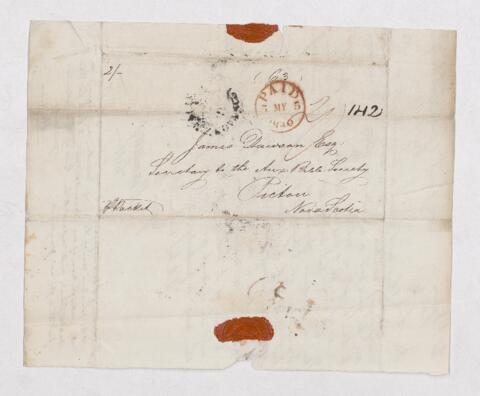 2/-
63
PAID
MY 5
2/
142
James Dawson Esq.
Secretary to the Aux Bible Society
Pictou
Nova Scotia
Packet